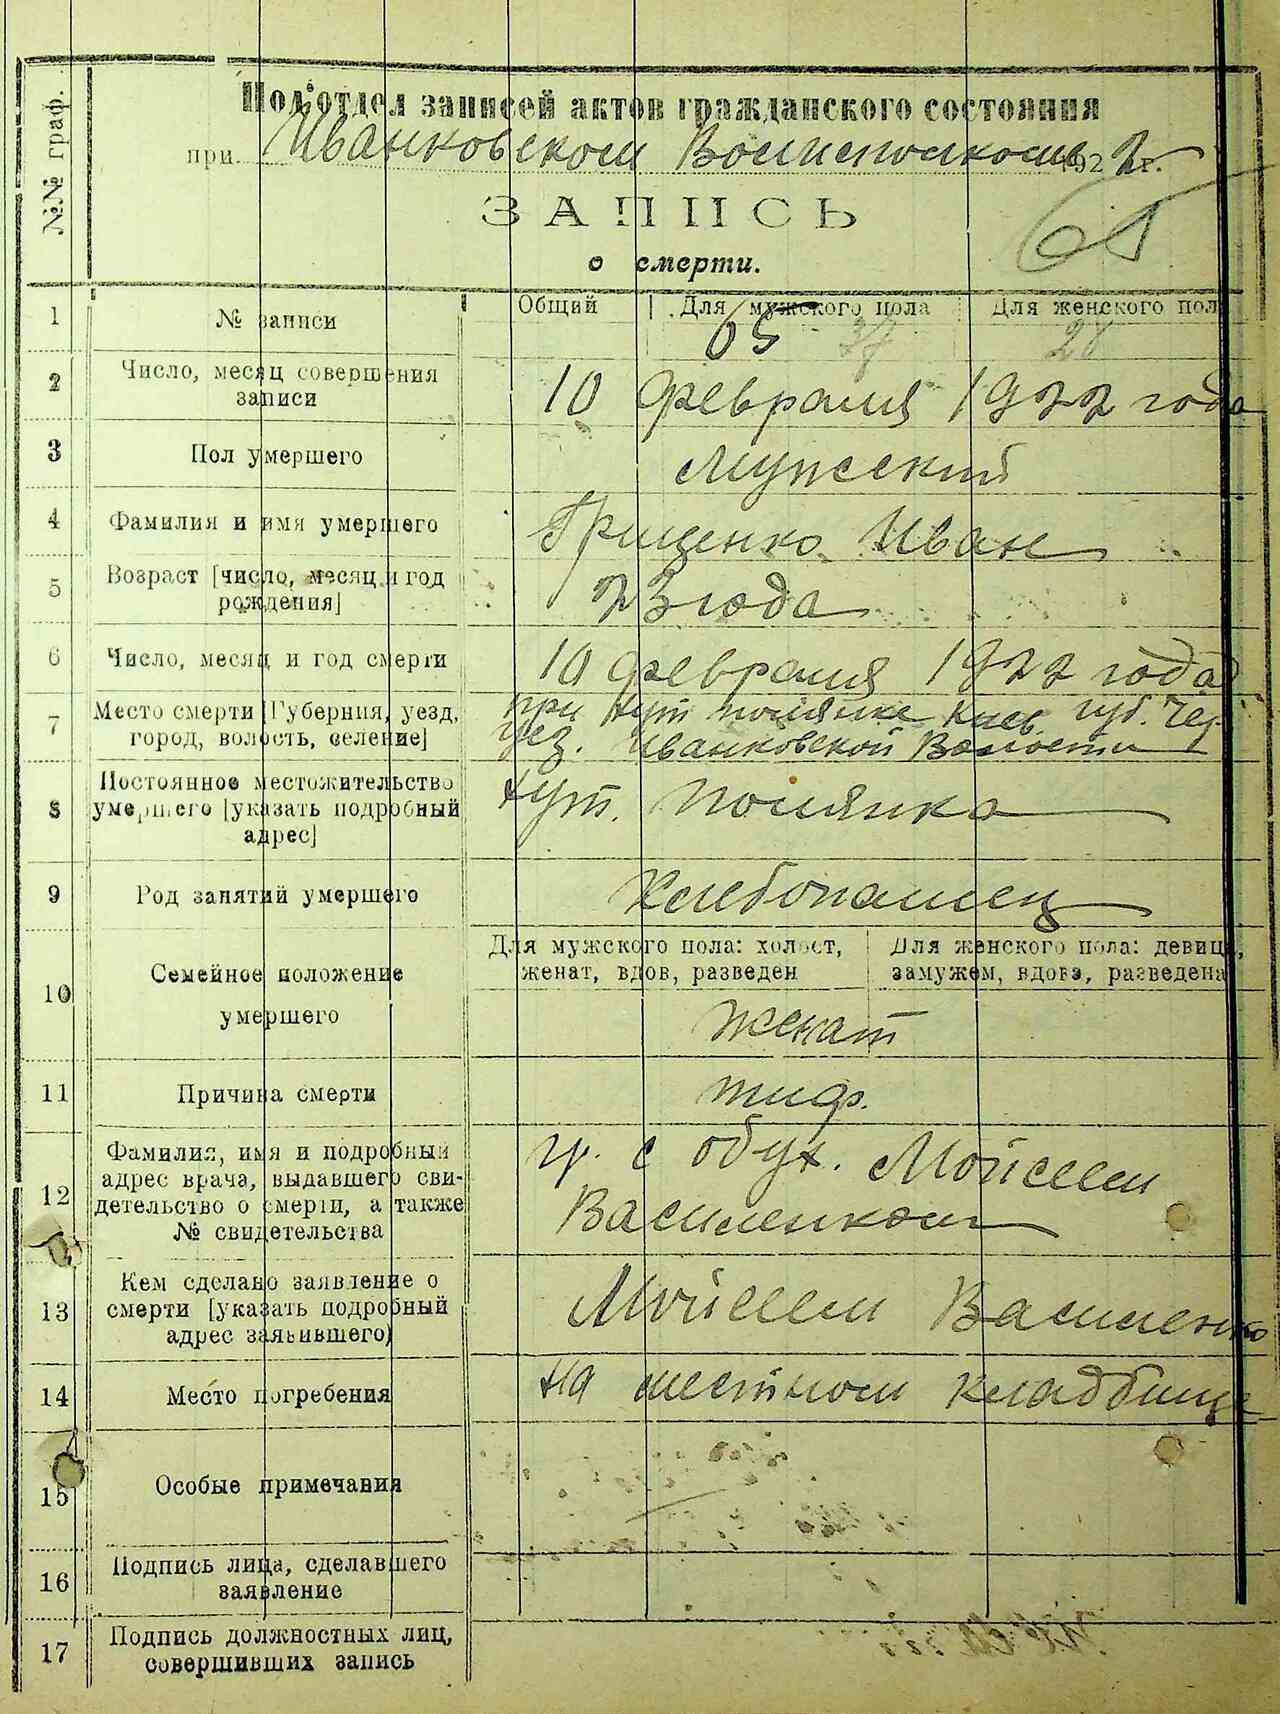 №№ граф.
Под'отдел записей актов гражданского состояния
при Иванковском Волисполкоме 1922 г.
ЗАПИСЬ
о смерти.
1 № записи
Общий Для мужского пола Для женского пол
65 37 28
2 Число, месяц совершения
записи
10 февраля 1922 года
3 Пол умершего
Мужский
4 Фамилия и имя умершего
Гриценко Иван
5 Возраст [число, месяц и год
рождения]
23 года
6 Число, месяц и год смерти
10 февраля 1922 года
7 Место смерти [Губерния, уезд,
город, волость, селение]
при хут полянке Киев. губ. Чер.
уез. Иванковской Волости
8 Постоянное местожительство
умершего [указать подробный
адрес]
хут. Полянка
9 Род занятий умершего
Хлебопашец
10 Семейное положение
умершего
Для мужского пола: холост,
женат, вдов, разведен
Для женского пола: девица,
замужем, вдова, разведена
женат
11 Причина смерти
тиф.
12 Фамилия, имя и подробный
адрес врача, выдавшего сви-
детельство о смерти, а также
№ свидетельства
гр. с обух. Мойсеем
Василенком
13 Кем сделано заявление о
смерти [указать подробный
адрес заявившего)
Мойсеем Василенко
14 Место погребения
на местном кладбище
15 Особые примечания
16 Подпись лица, сделавшего
заявление
17 Подпись должностных лиц,
совершивших запись